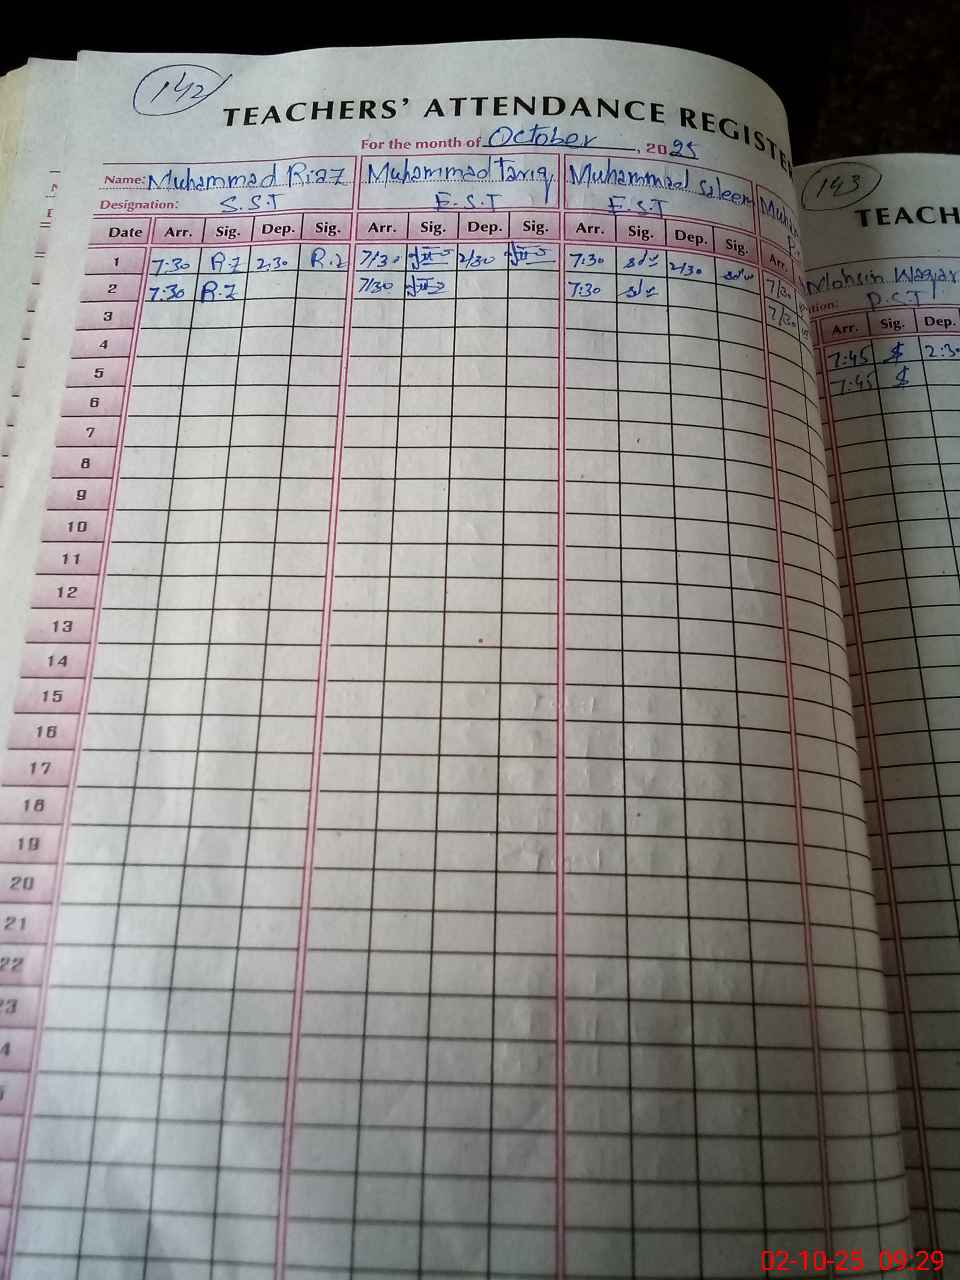 142
TEACHERS' ATTENDANCE REGISTER
For the month of October, 2025
Name: Muhammad Riaz Muhammad Tariq Muhammad Saleem
Designation: S.S.T E.S.T E.S.T
Date Arr. Sig. Dep. Sig. Arr. Sig. Dep. Sig. Arr. Sig. Dep. Sig. Arr.
1 7:30 R.Z 2:30 R.Z 7/30 2/30 7:30 2/30 7/30
2 7:30 R.Z 7/30 7:30 7/30
3
4
5
6
7
8
9
10
11
12
13
14
15
16
17
18
19
20
21
22
23
4
143
TEACH
Mohsin Waqar
tion: P.S.T
Arr. Sig. Dep.
7:45 $ 2:30
7:45 $
02-10-25 09:29